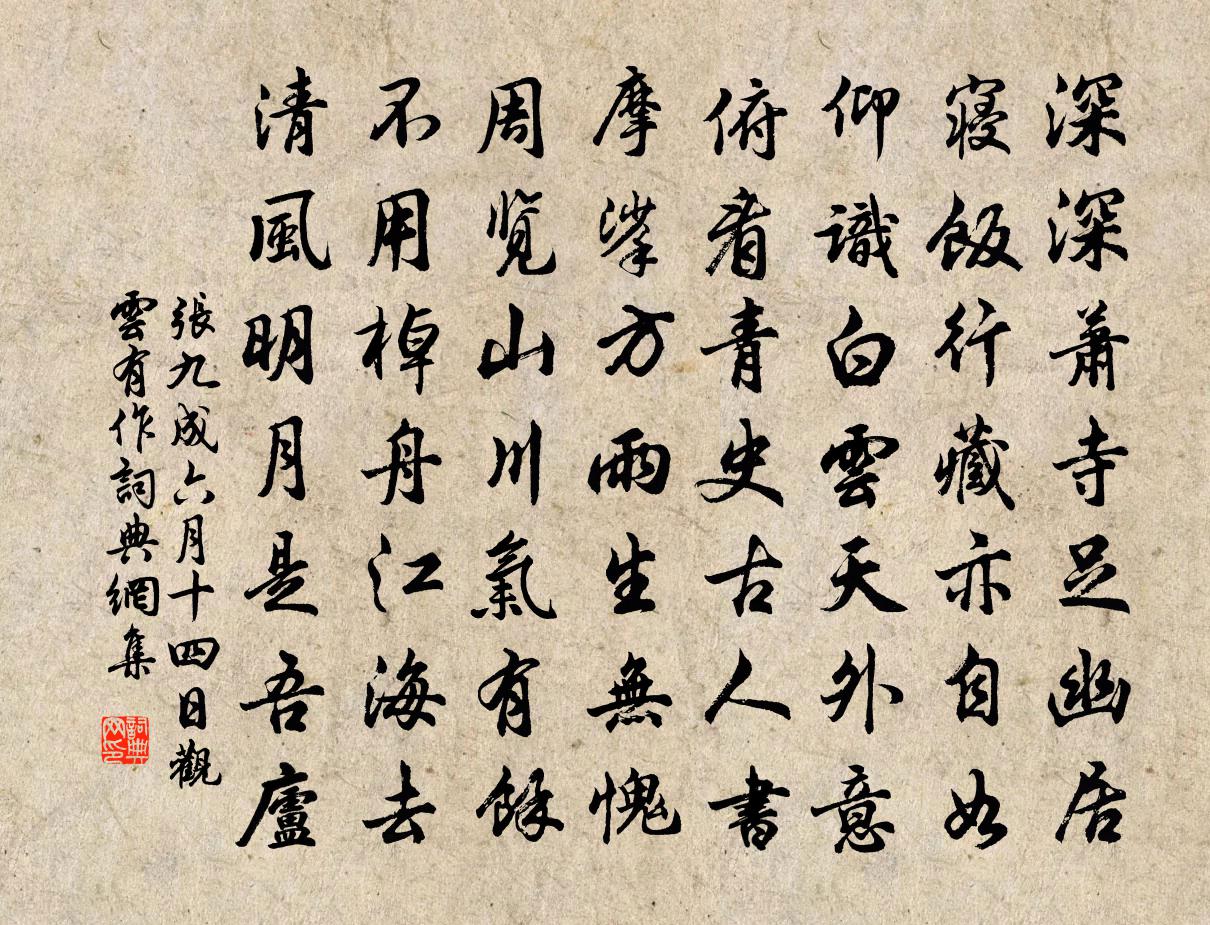 深深蕭寺足幽居
寝飯行藏亦自如
仰識白雲天外意
俯看青史古人書
摩挲方兩生無愧
周覧山川氣有餘
不用棹舟江海去
清風明月是吾廬
張九成六月十四日觀
雲有作詞典網集
詞典
网印